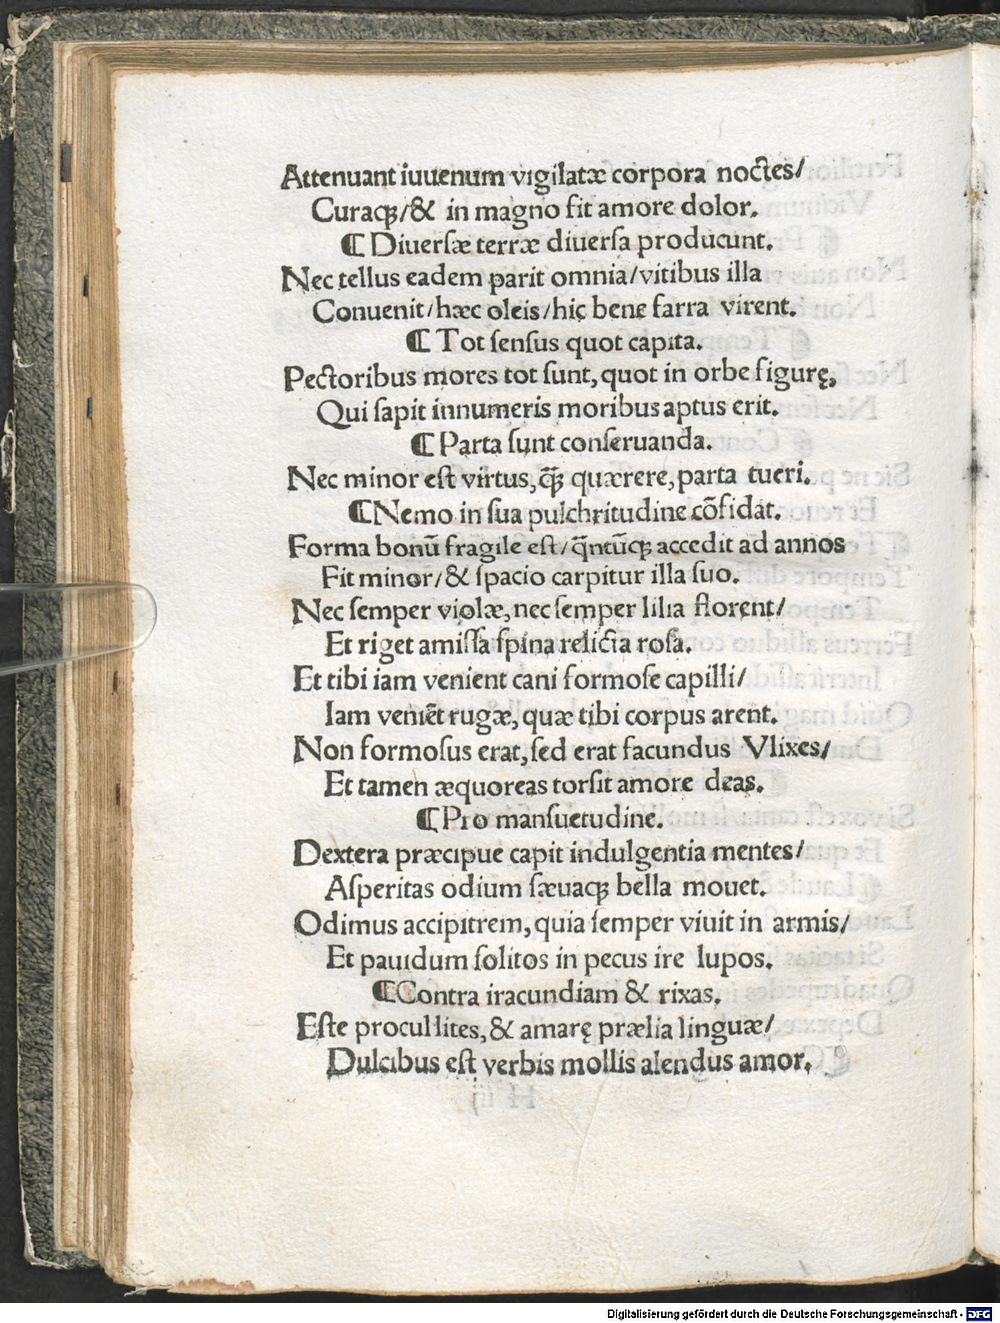 Attenuant iuuenum vigilatæ corpora noctes/
Curaqꝫ/& in magno fit amore dolor.
¶ Diuerſæ terræ diuerſa producunt.
Nec tellus eadem parit omnia/vitibus illa
Conuenit/hæc oleis/hic bene farra virent.
¶ Tot ſenſus quot capita.
Pectoribus mores tot ſunt, quot in orbe figurę,
Qui ſapit innumeris moribus aptus erit.
¶ Parta ſunt conſeruanda.
Nec minor eſt virtus, q̄ꝫ quærere, parta tueri.
¶ Nemo in ſua pulchritudine cōfidat.
Forma bonū fragile eſt/q̄ntūcqꝫ accedit ad annos
Fit minor/& ſpacio carpitur illa ſuo.
Nec ſemper violæ, nec ſemper lilia florent/
Et riget amiſſa ſpina relicta roſa.
Et tibi iam venient cani formoſe capilli/
Iam veniēt rugæ, quæ tibi corpus arent.
Non formoſus erat, ſed erat facundus Vlixes/
Et tamen æquoreas torſit amore deas.
¶ Pro manſuetudine.
Dextera præcipue capit indulgentia mentes/
Aſperitas odium ſæuaqꝫ bella mouet.
Odimus accipitrem, quia ſemper viuit in armis/
Et pauidum ſolitos in pecus ire lupos.
¶ Contra iracundiam & rixas.
Eſte procul lites, & amarę prælia linguæ/
Dulcibus eſt verbis mollis alendus amor.
Digitalisierung gefördert durch die Deutsche Forschungsgemeinschaft - DFG